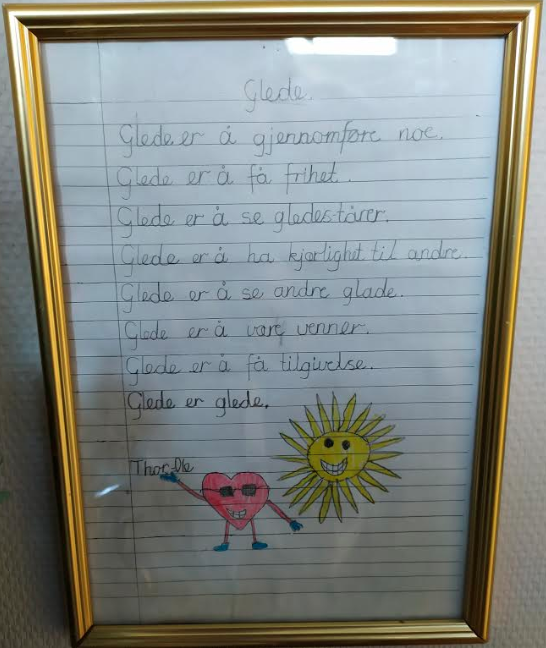 Glede.
Glede er å gjennomføre noe.
Glede er å få frihet.
Glede er å se gledes-tårer.
Glede er å ha kjærlighet til andre.
Glede er å se andre glade.
Glede er å være venner.
Glede er å få tilgivelse.
Glede er glede.
Thor-Ole